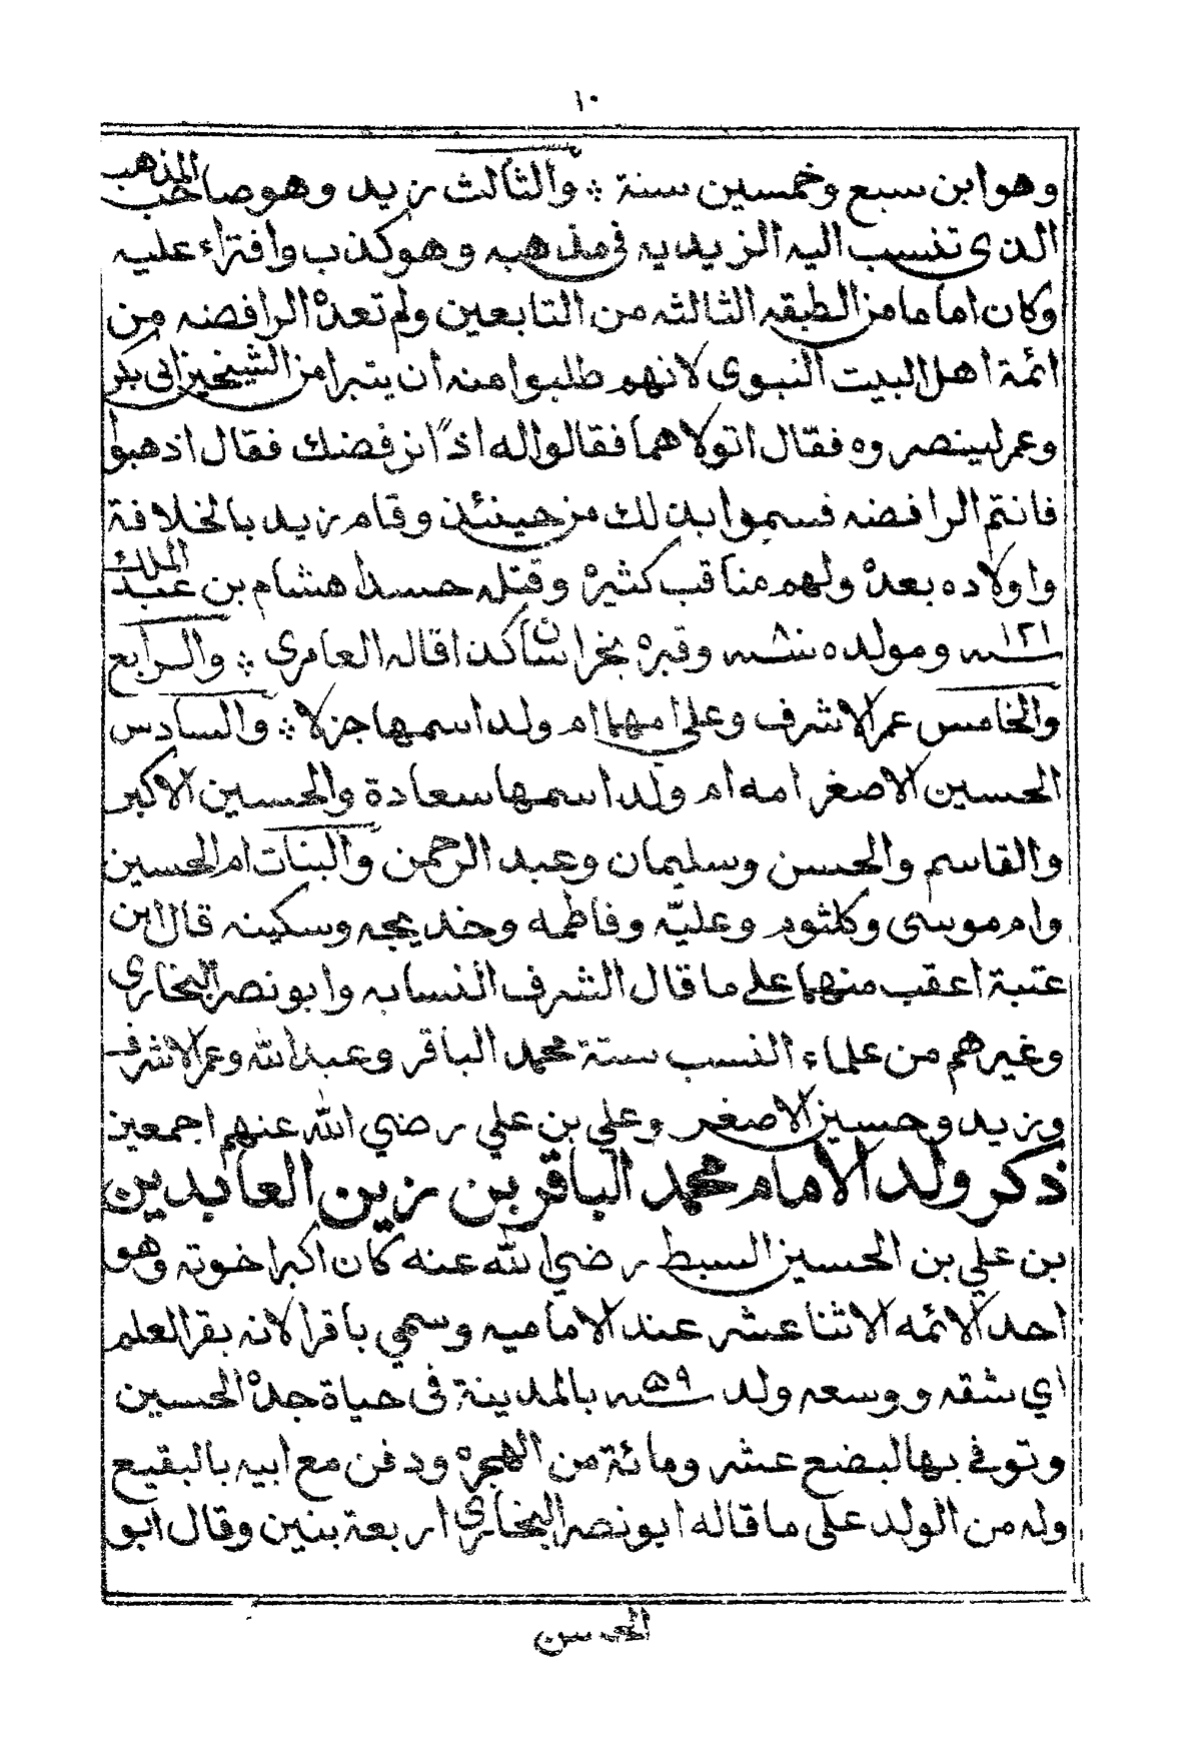 ١٠
وهو ابن سبع وخمسين سنة ؞ والثالث زيد وهو صاحب المذهب
الذى تنسب اليه الزيديه فى مذهبه وهو كذب وافتراء عليه
وكان اماما من الطبقه الثالثه من التابعين ولم تعده الرافضه من
ائمة اهل البيت النبوى لانهم طلبوا منه ان يتبرا من الشيخين ابى بكر
وعمر لينصروه فقال اتولاهما فقالوا له اذًا نرفضك فقال اذهبوا
فانتم الرافضه فسموا بذلك من حينئذ وقام زيد بالخلافة
واولاده بعده ولهم مناقب كثيره وقتله حسدا هشام بن عبد الملك
سنه ١٢١ ومولده سنه ٨ وقبره بخراسان كذا قاله العامرى ؞ والرابع
والخامس عمر الاشرف وعلى امهما ام ولد اسمها جزلا ؞ والسادس
الحسين الاصغر امه ام ولد اسمها سعادة والحسين الاكبر
والقاسم والحسن وسليمان وعبد الرحمن والبنات ام الحسين
وام موسى وكلثوم وعليّه وفاطمه وخديجه وسكينه قال ابن
عتبة اعقب منهما على ما قال الشرف النسابه وابو نصر البخارى
وغيرهم من علماء النسب ستة محمد الباقر وعبد الله وعمر الاشرف
وزيد وحسين الاصغر وعلي بن علي رضي الله عنهم اجمعين
ذكر ولد الامام محمد الباقر بن زين العابدين
بن علي بن الحسين السبط رضي الله عنه كان اكبر اخوته وهو
احد الائمه الاثنا عشر عند الاماميه وسمي باقرا لانه بقر العلم
اي شقه ووسعه ولد سنه ٥٩ بالمدينة فى حياة جده الحسين
وتوفي بها لبضع عشر ومائة من الهجره ودفن مع ابيه بالبقيع
وله من الولد على ما قاله ابو نصر البخارى اربعة بنين وقال ابو
الحسن